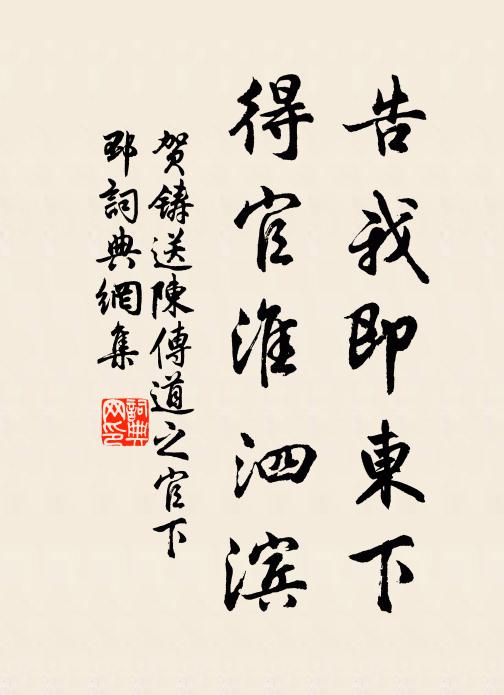 告我即東下
得官淮泗滨
贺鑄送陳傳道之官下
邳詞典網集
詞典
网印